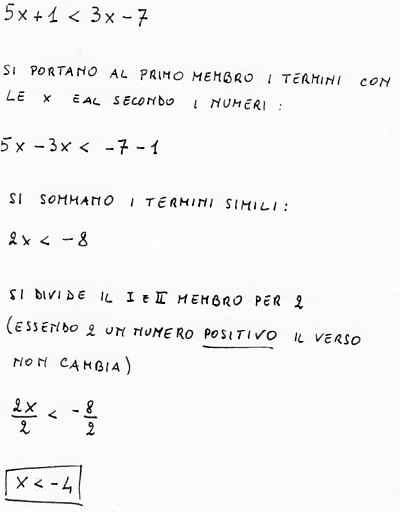 5x+1 < 3x-7
SI PORTANO AL PRIMO MEMBRO I TERMINI CON
LE x E AL SECONDO I NUMERI :
5x-3x < -7-1
SI SOMMANO I TERMINI SIMILI :
2x < -8
SI DIVIDE IL I E II MEMBRO PER 2
(ESSENDO 2 UN NUMERO POSITIVO IL VERSO
NON CAMBIA)
2x/2 < -8/2
x < -4